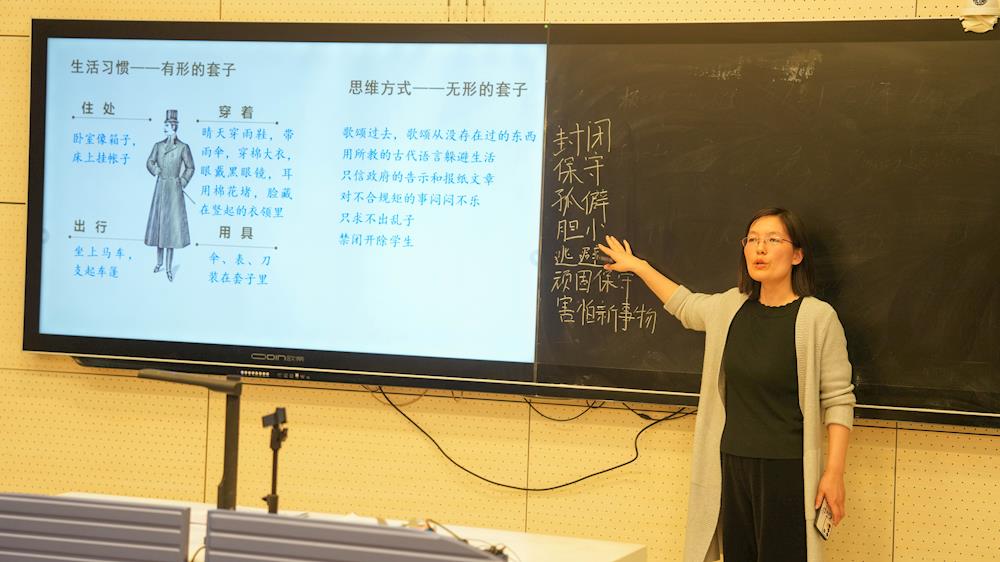 生活习惯——有形的套子
住 处
卧室像箱子，
床上挂帐子
穿 着
晴天穿雨鞋，带
雨伞，穿棉大衣，
眼戴黑眼镜，耳
用棉花堵，脸藏
在竖起的衣领里
出 行
坐上马车，
支起车篷
用 具
伞、表、刀
装在套子里
思维方式——无形的套子
歌颂过去，歌颂从没存在过的东西
用所教的古代语言躲避生活
只信政府的告示和报纸文章
对不合规矩的事闷闷不乐
只求不出乱子
禁闭开除学生
封闭
保守
孤僻
胆小
逃避
顽固保守
害怕新事物